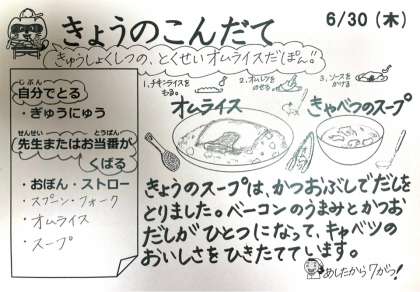 きょうのこんだて
6/30(木)
"きゅうしょくしつの、とくせいオムライスだぽん。"
1、チキンライスを
もる。
2、オムレツを
のせる
3、ソースを
かける
じぶん
自分でとる
・ぎゅうにゅう
せんせい とうばん
先生またはお当番が
くばる
・おぼん・ストロー
・スプーン・フォーク
・オムライス
・スープ
オムライス
きゃべつのスープ
きょうのスープは、かつおぶしでだしを
とりました。ベーコンのうまみとかつお
だしがひとつになって、キャベツの
おいしさをひきたてています。
あしたから7がつ!